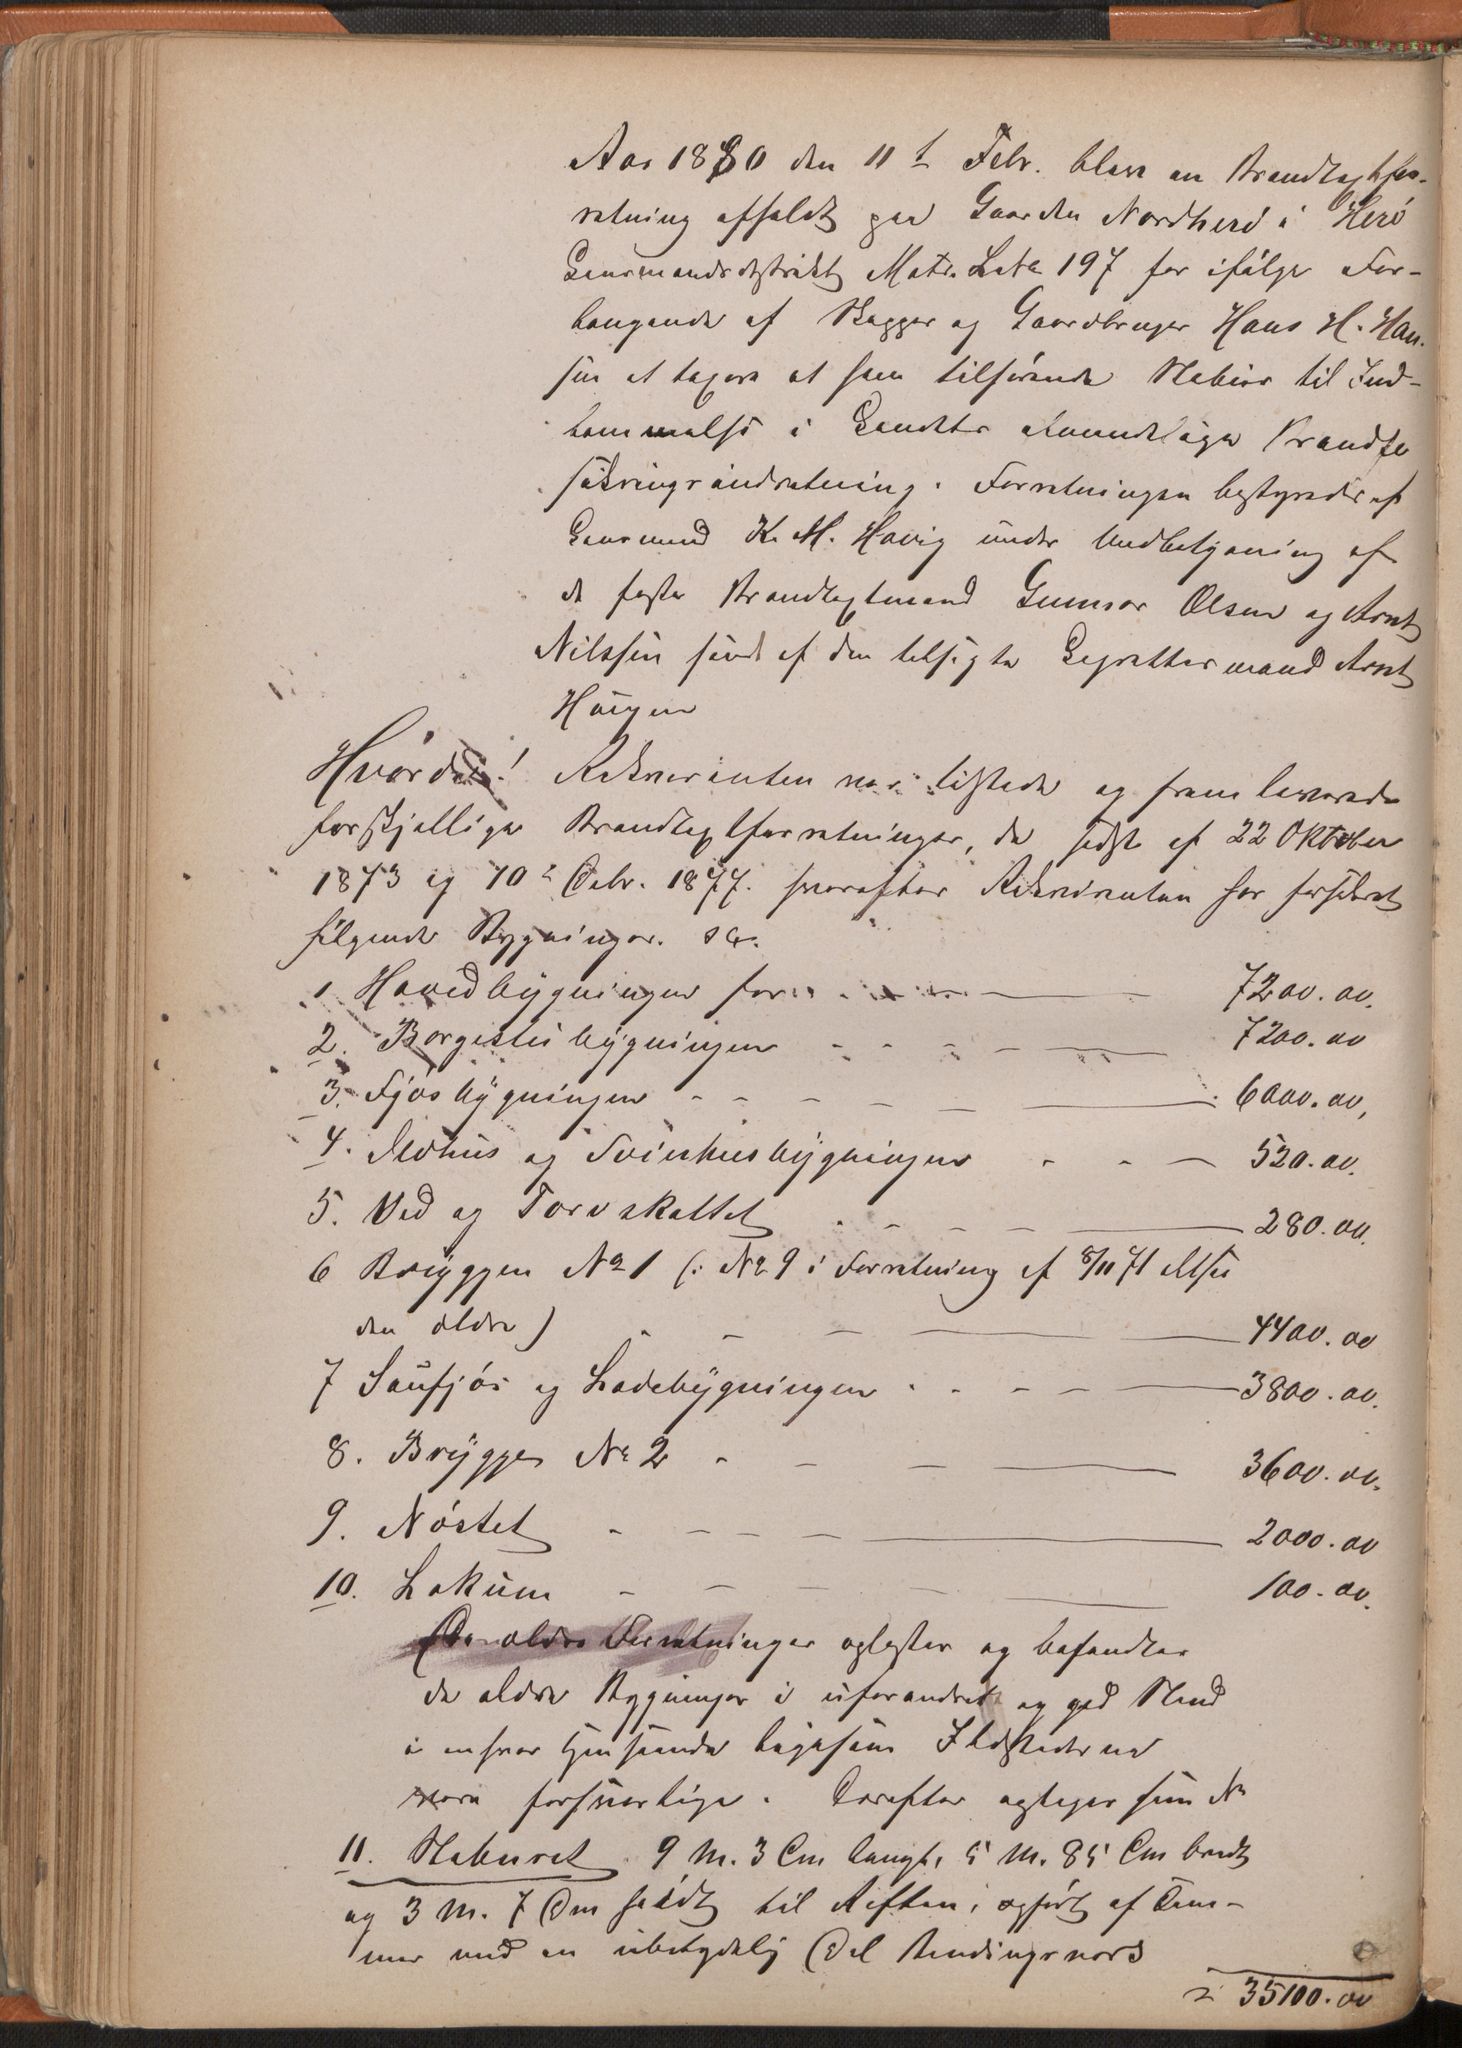 Aar 1880 den 11t Febr. blev en Brandtaxtfor-
retning afholdt paa Gaarden Nordherø i Herø
Lensmandsdistrikt Matr. Løbe No 197 for ifølge For-
langende af Skipper og Gaardbruger Hans H. Han-
sen at taxere et ham tilhørende Stabur til Ind-
lemmelse i Landets almindelige Brandfor
sikringsindretning. Forretningen bestyredes af
Lensmand K. M. Havig under Medbetjening af
de faste Brandtaxtmænd Gunnar Olsen og Arnt
Nilssen samt af den tilsagte Lagrettesmand Arnt
Haugen
Hvorda! Rekvirenten var tilstede og fremleverede
forskjellige Brandtaxtforretninger, de sidste af 22 Oktober
1873 og 10de Debr. 1877. hvorefter Rekvirenten har forsikret
følgende Bygninger. so:
1 Hovedbygningen for - - - 7200.00.
2. Borgestubygningen - - - 7200.00
3. Fjøsbygningen - - - 6000.00,
4. Ildhus og Svinhusbygningen - - - 520.00.
5. Ved og Torvskallet - - - 280.00.
6 Bryggen No 1 (: No 9 i Forretning af 8/11 71 altsaa
den ældre) - - - 4400.00
7 Saufjøs og Ladebygningen - - - 3800.00.
8. Brygge No 2 - - - 3600.00.
9. Nøstet - - - 2000.00
10. Lokum - - - 100.00.
De ældre Forretninger oplæstes og befandtes
de ældre Bygninger i uforandret og god Stand
i enhver Henseende ligesom Ildstederne
vare forsvarlige. Derefter optages som No
11. Staburet 9 M. 3 Cm langt, 5 M. 85 Cm bredt
og 3 M. 7 Cm høidt til Røften, opført af Tøm-
mer med en ubetydelig Del Bindingsverk
35100.00